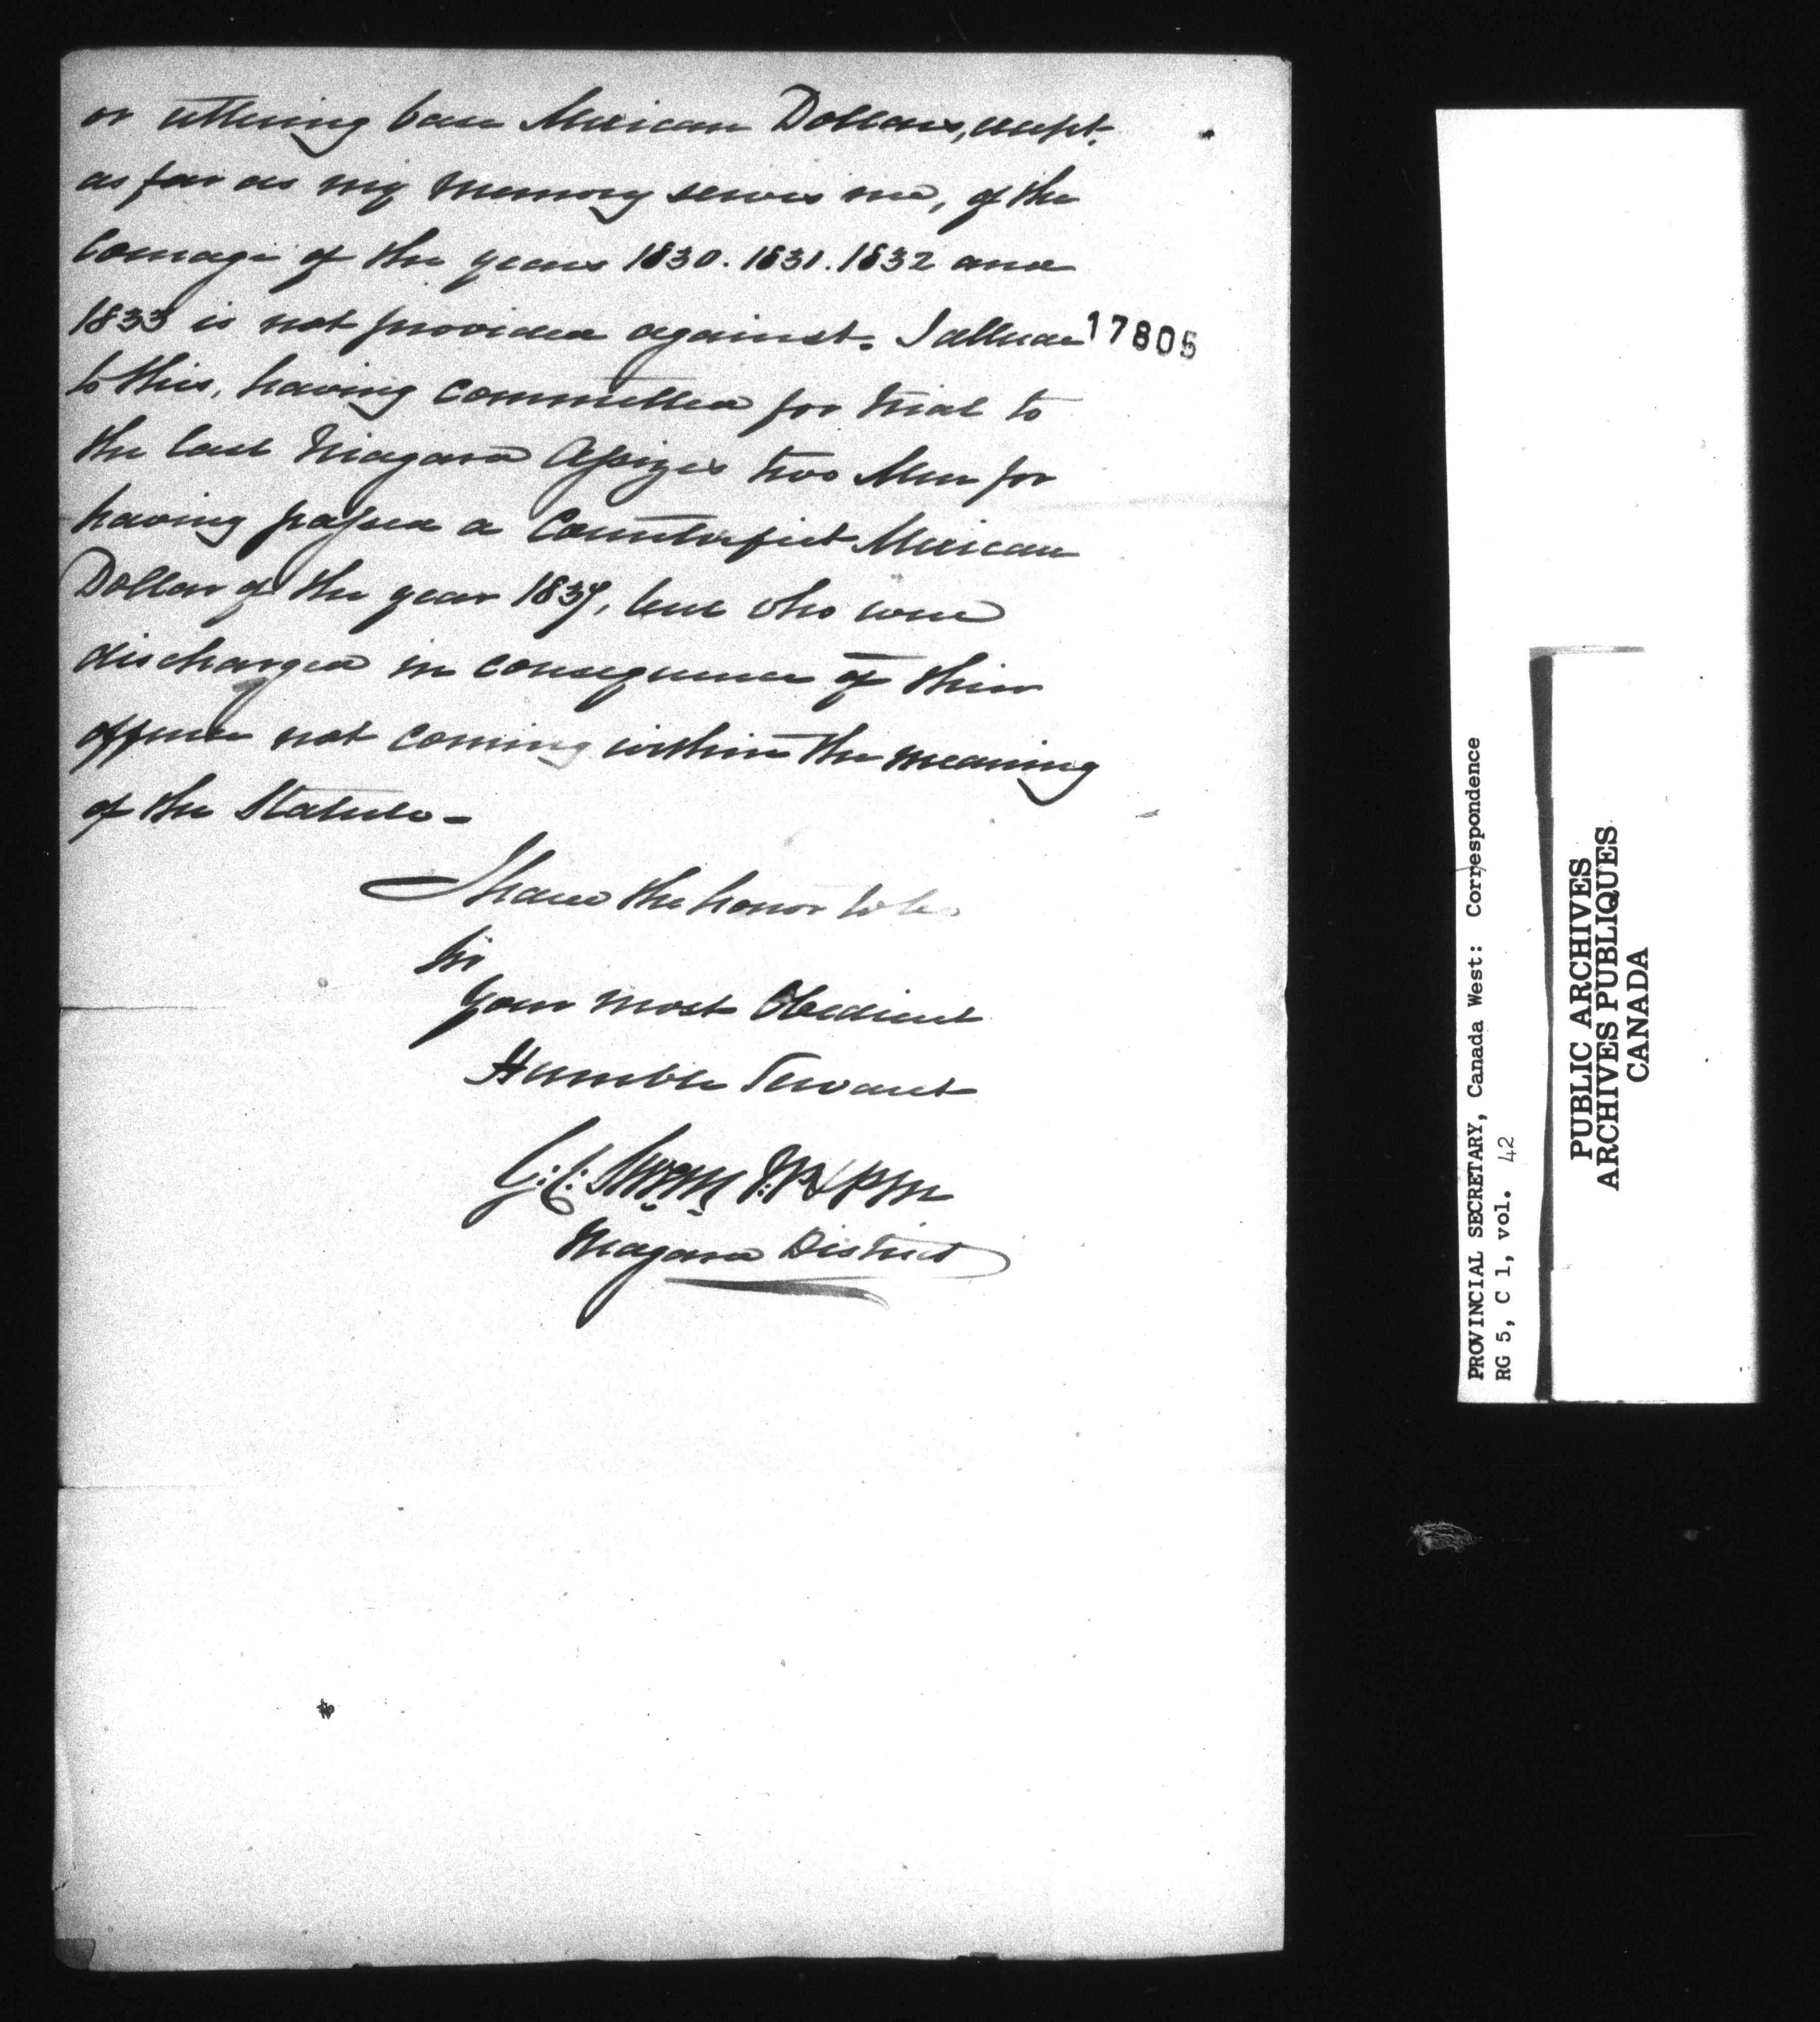 or uttering base Mexican Dollars, except
as far as my memory serves me, of the
Coinage of the years 1830. 1831. 1832 and
1833 is not provided against. I allude
17805
to this, having committed for trial to
the last Niagara Assizes two Men for
having passed a Counterfeit Mexican
Dollar of the year 1839, but who were
discharged in consequence of their
offence not coming within the meaning
of the Statute -
I have the honor to be
Sir
Your most Obedient
Humble Servant
G: C:
Niagara District
PROVINCIAL SECRETARY, Canada West: Correspondence
RG 5, C 1, vol. 42
PUBLIC ARCHIVES
ARCHIVES PUBLIQUES
CANADA